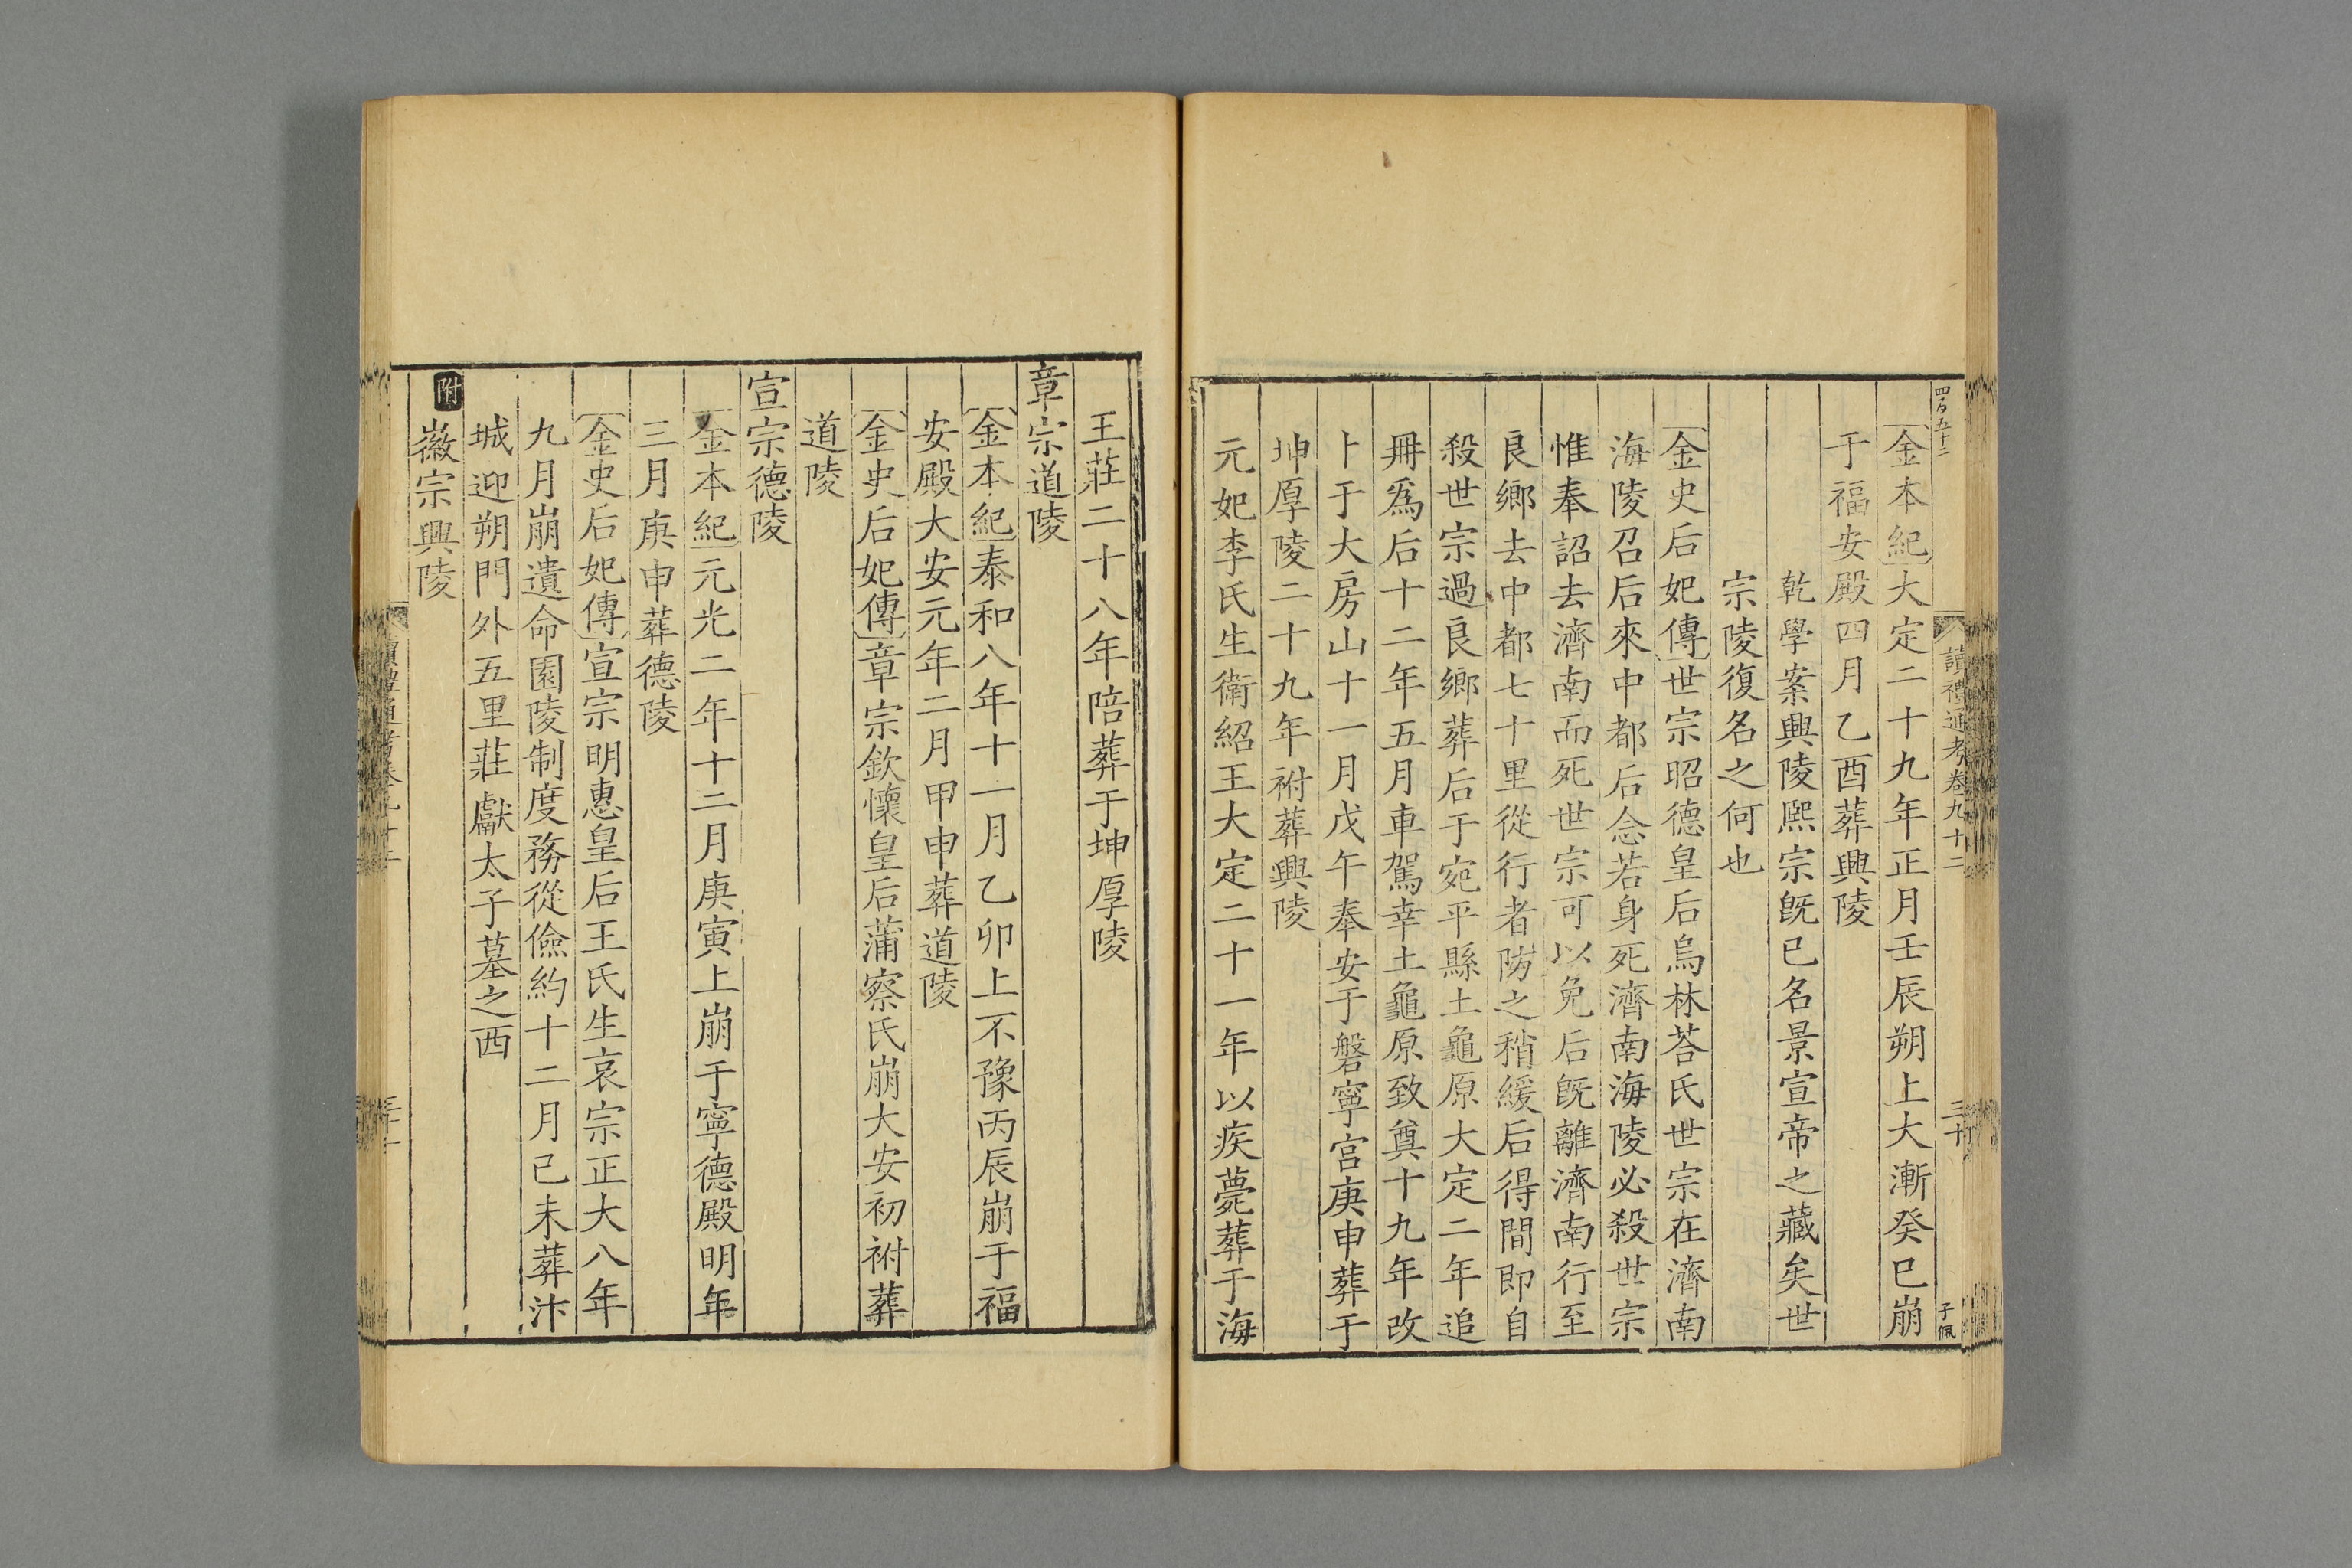 四百五十二
讀禮通考卷九十二
三十
子佩
金本紀大定二十九年正月壬辰朔上大漸癸巳崩
于福安殿四月乙酉葬興陵
乾學案興陵熙宗既已名景宣帝之藏矣世
宗陵復名之何也
金史后妃傳世宗昭德皇后烏林荅氏世宗在濟南
海陵召后來中都后念若身死濟南海陵必殺世宗
惟奉詔去濟南而死世宗可以免后既離濟南行至
良鄉去中都七十里從行者防之稍緩后得間即自
殺世宗過良鄉葬后于宛平縣土龜原大定二年追
冊爲后十二年五月車駕幸土龜原致奠十九年改
卜于大房山十一月戊午奉安于磐寧宮庚申葬于
坤厚陵二十九年祔葬興陵
元妃李氏生衛紹王大定二十一年以疾薨葬于海
王莊二十八年陪葬于坤厚陵
章宗道陵
金本紀泰和八年十一月乙卯上不豫丙辰崩于福
安殿大安元年二月甲申葬道陵
金史后妃傳章宗欽懷皇后蒲察氏崩大安初祔葬
道陵
宣宗德陵
金本紀元光二年十二月庚寅上崩于寧德殿明年
三月庚申葬德陵
金史后妃傳宣宗明惠皇后王氏生哀宗正大八年
九月崩遺命園陵制度務從儉約十二月己未葬汴
城迎朔門外五里莊獻太子墓之西
附 徽宗興陵